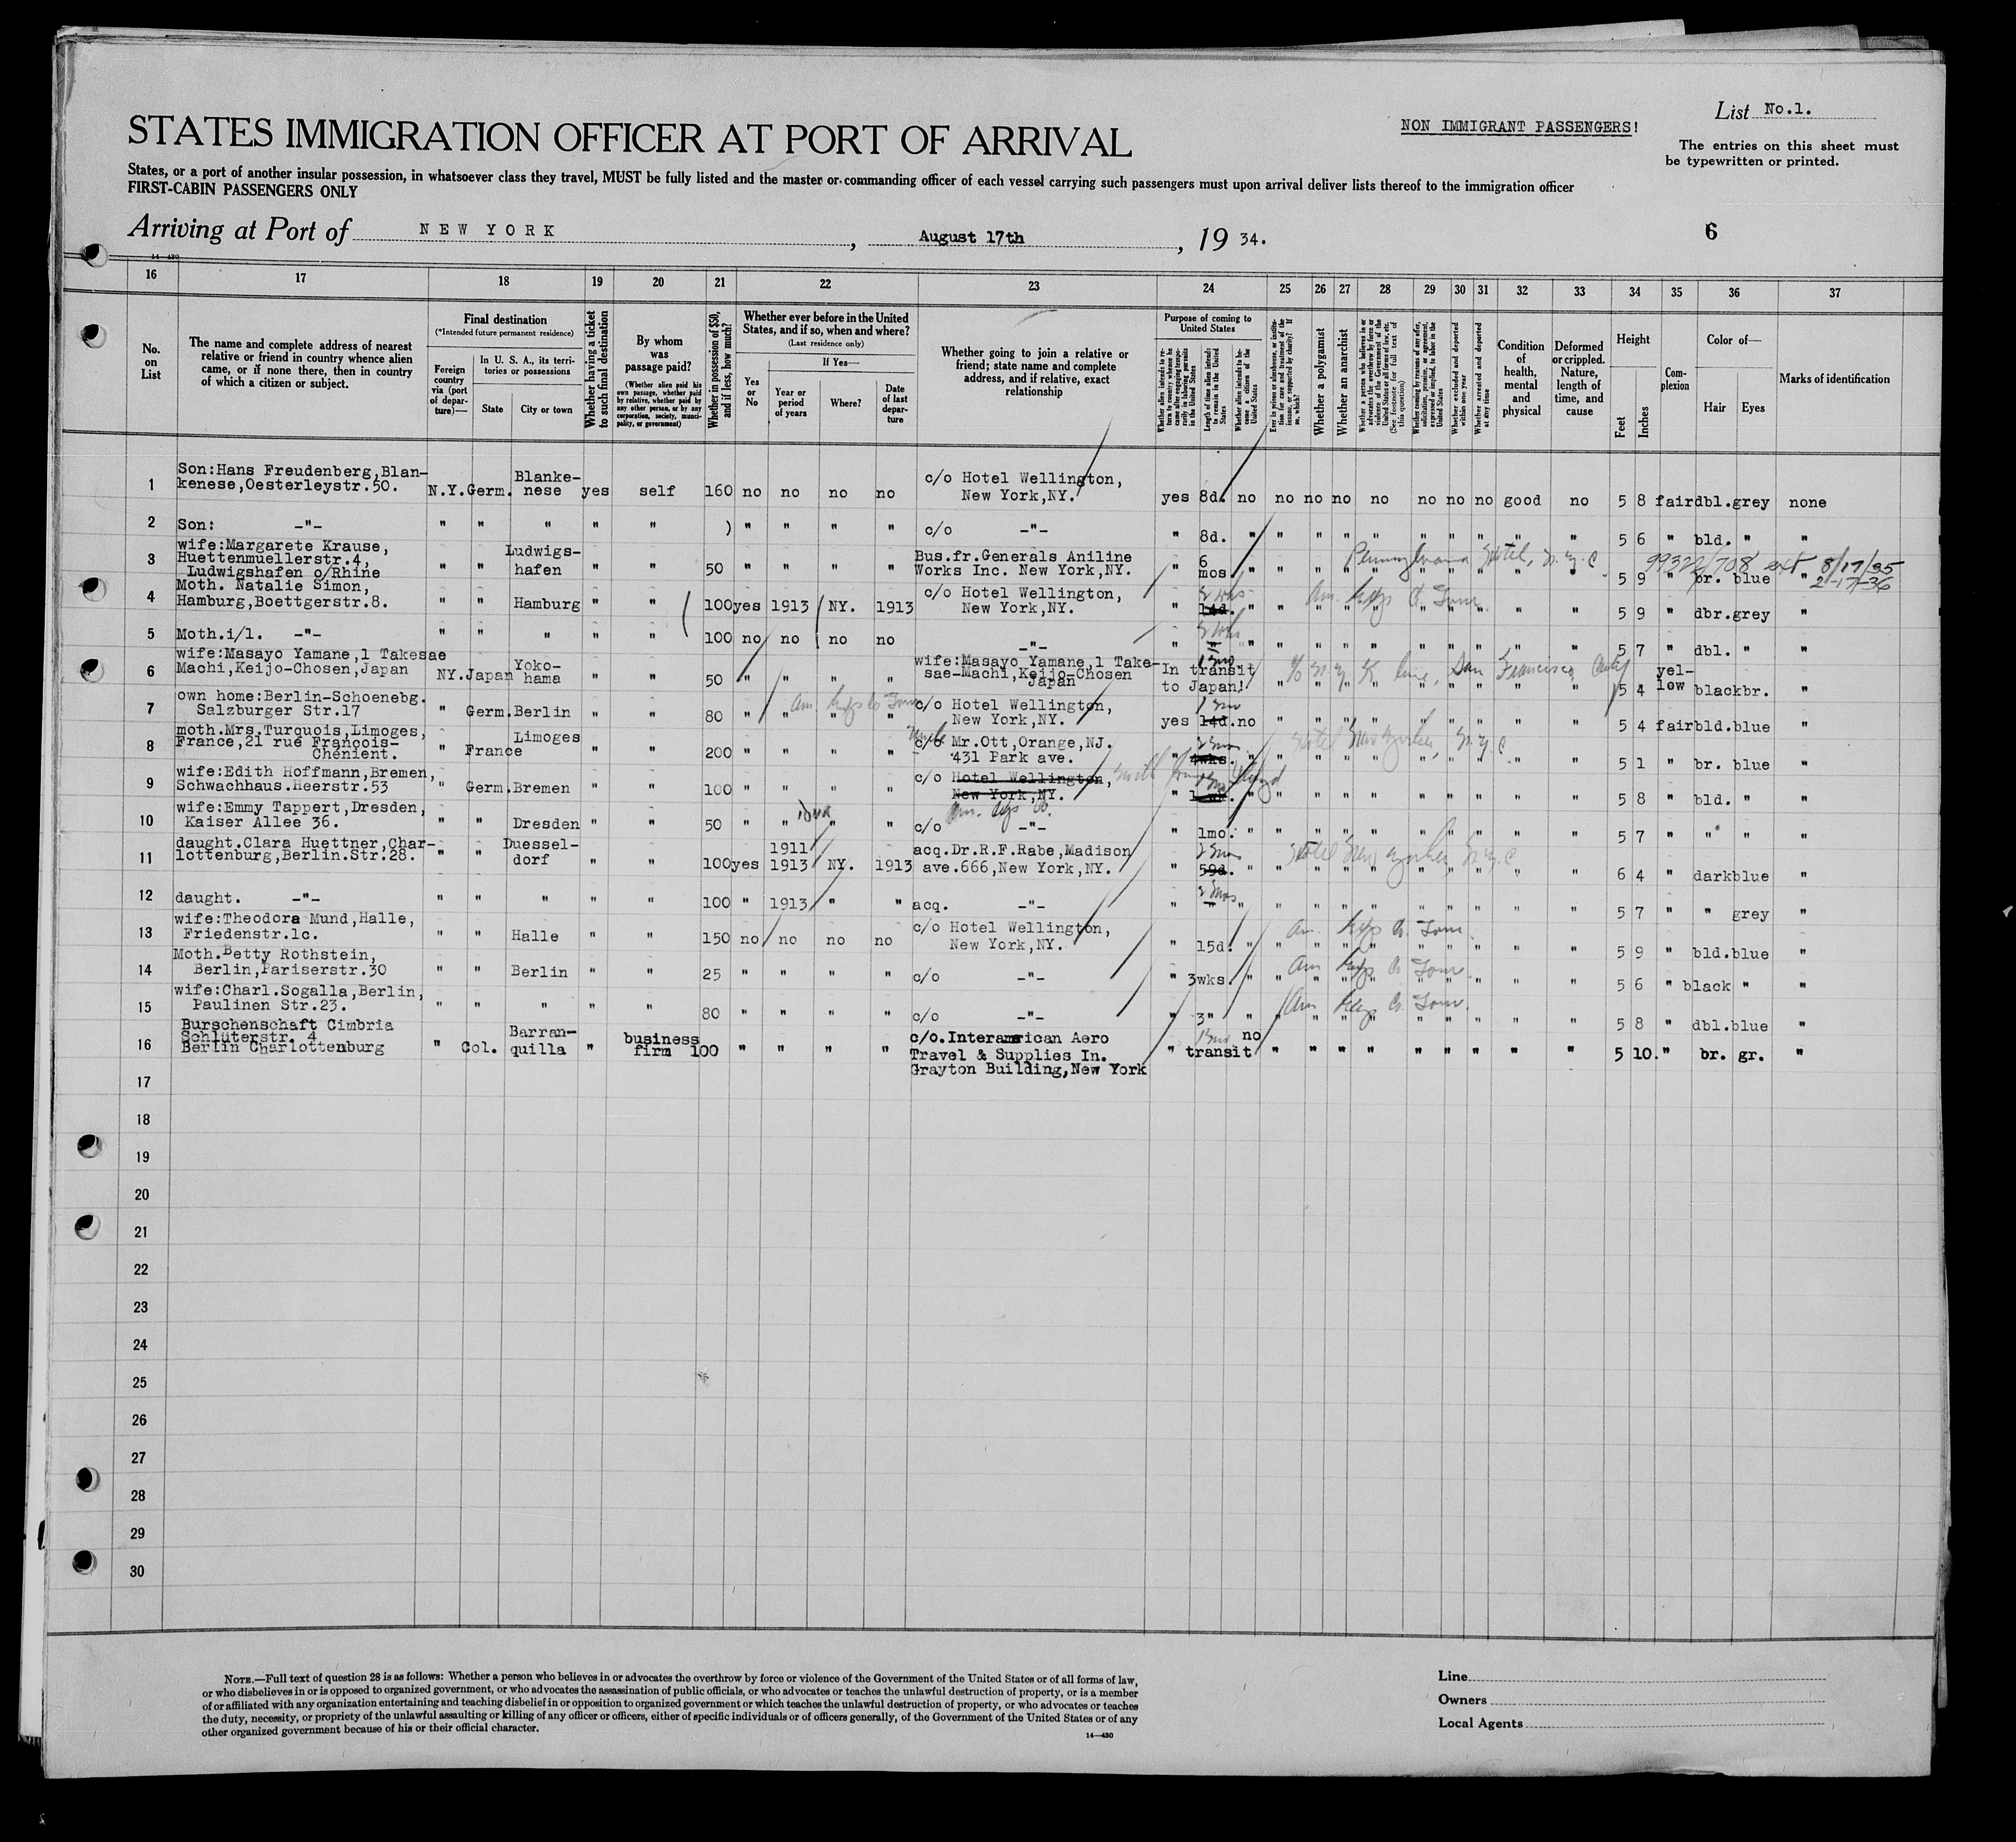 List No.1.
STATES IMMIGRATION OFFICER AT PORT OF ARRIVAL
NON IMMIGRANT PASSENGERS!
The entries on this sheet must
be typewritten or printed.
States, or a port of another insular possession, in whatsoever class they travel, MUST be fully listed and the master or commanding officer of each vessel carrying such passengers must upon arrival deliver lists thereof to the immigration officer
FIRST-CABIN PASSENGERS ONLY
Arriving at Port of NEW YORK, August 17th, 19 34.
6
14—430
16 17 18 19 20 21 22 23 24 25 26 27 28 29 30 31 32 33 34 35 36 37
No. on List
The name and complete address of nearest relative or friend in country whence alien came, or if none there, then in country of which a citizen or subject.
Final destination
(*Intended future permanent residence)
Foreign country via (port of departure)—
In U. S. A., its territories or possessions
State
City or town
Whether having a ticket to such final destination
By whom was passage paid?
(Whether alien paid his own passage, whether paid by relative, whether paid by any other person, or by any corporation, society, municipality, or government)
Whether in possession of $50, and if less, how much?
Whether ever before in the United States, and if so, when and where?
(Last residence only)
Yes or No
If Yes—
Year or period of years
Where?
Date of last departure
Whether going to join a relative or friend; state name and complete address, and if relative, exact relationship
Purpose of coming to United States
Whether alien intends to return to country whence he came after engaging temporarily in laboring pursuits in the United States
Length of time alien intends to remain in the United States
Whether alien intends to become a citizen of the United States
Ever in prison or almshouse, or institution for care and treatment of the insane, or supported by charity? If so, which?
Whether a polygamist
Whether an anarchist
Whether a person who believes in or advocates the overthrow by force or violence of the Government of the United States or all forms of law, etc. (See footnote for full text of this question)
Whether coming by reason of any offer, solicitation, promise, or agreement, expressed or implied, to labor in the United States
Whether excluded and deported within one year
Whether arrested and deported at any time
Condition of health, mental and physical
Deformed or crippled. Nature, length of time, and cause
Height
Feet
Inches
Complexion
Color of—
Hair
Eyes
Marks of identification
1 Son:Hans Freudenberg,Blankenese,Oesterleystr.50. N.Y. Germ. Blankenese yes self 160 no no no no c/o Hotel Wellington, New York,NY. yes 8d. no no no no no no no no good no 5 8 fair dbl. grey none
2 Son: -"- " " " " " ) " " " " c/o -"- " 8d. " " " " " " " " " " 5 6 " bld. " "
3 wife:Margarete Krause, Huettenmuellerstr.4, Ludwigshafen o/Rhine " " Ludwigshafen " " 50 " " " " Bus.fr.Generals Aniline Works Inc. New York,NY. " 6 mos. " " " " " " " " " " 5 9 " br. blue "
Pennsylvania Hotel, N.Y.C 99322/708 ext 8/17/35
2-17-36
4 Moth. Natalie Simon, Hamburg,Boettgerstr.8. " " Hamburg " " 100 yes 1913 NY. 1913 c/o Hotel Wellington, New York,NY. " 14d. " " " " " " " " " " 5 9 " dbr. grey
Am. Exp Co Tour
5 Moth.i/l. -"- " " " " " 100 no no no no -"- " " " " " " " " " " " " 5 7 " dbl. " "
6 wife:Masayo Yamane,1 Takesae Machi,Keijo-Chosen,Japan NY. Japan Yokohama " " 50 " " " " wife:Masayo Yamane,1 Takesae-Machi,Keijo-Chosen Japan In transit to Japan! " " " " " " " " " 5 4 yellow black br. "
San Francisco
7 own home:Berlin-Schoenebg. Salzburger Str.17 " Germ. Berlin " " 80 " " " " c/o Hotel Wellington, New York,NY. yes 14d. no " " " " " " " " " 5 4 fair bld. blue "
Am. Exp Co Tour
8 moth.Mrs.Turquois,Limoges, France,21 rue François-Chénient. " France Limoges " " 200 " " " " c/o Mr.Ott,Orange,NJ. 431 Park ave. " 4wks. " " " " " " " " " " 5 1 " br. blue "
Uncle
Hotel New Yorker, N.Y.C.
9 wife:Edith Hoffmann,Bremen, Schwachhaus.Heerstr.53 " Germ. Bremen " " 100 " " " " c/o Hotel Wellington, New York,NY. " 1 wk. " " " " " " " " " " 5 8 " bld. " "
10 wife:Emmy Tappert,Dresden, Kaiser Allee 36. " " Dresden " " 50 " " " " c/o -"- " 1mo. " " " " " " " " " " 5 7 " " " "
11 daught.Clara Huettner,Charlottenburg,Berlin.Str.28. " " Duesseldorf " " 100 yes 1911 1913 NY. 1913 acq.Dr.R.F.Rabe,Madison ave.666,New York,NY. " 59d. " " " " " " " " " " 6 4 " dark blue "
Hotel New Yorker N.Y.C
12 daught. -"- " " " " " 100 " 1913 " " acq. -"- " " " " " " " " " " " " 5 7 " " grey "
13 wife:Theodora Mund,Halle, Friedenstr.1c. " " Halle " " 150 no no no no c/o Hotel Wellington, New York,NY. " 15d. " " " " " " " " " " 5 9 " bld. blue "
Am. Exp Co. Tour
14 Moth.Betty Rothstein, Berlin,Pariserstr.30 " " Berlin " " 25 " " " " c/o -"- " 3wks. " " " " " " " " " " 5 6 " black " "
Am Exp Co Tour
15 wife:Charl.Sogalla,Berlin, Paulinen Str.23. " " " " " 80 " " " " c/o -"- " 3" " " " " " " " " " " 5 8 " dbl. blue "
Am Exp Co. Tour
16 Burschenschaft Cimbria Schlüterstr. 4 Berlin Charlottenburg " Col. Barranquilla " business firm 100 " " " " c/o.Interamerican Aero Travel & Supplies In. Grayton Building,New York " transit no " " " " " " " " " 5 10. " br. gr. "
17
18
19
20
21
22
23
24
25
26
27
28
29
30
NOTE.—Full text of question 28 is as follows: Whether a person who believes in or advocates the overthrow by force or violence of the Government of the United States or of all forms of law,
or who disbelieves in or is opposed to organized government, or who advocates the assassination of public officials, or who advocates or teaches the unlawful destruction of property, or is a member
of or affiliated with any organization entertaining and teaching disbelief in or opposition to organized government or which teaches the unlawful destruction of property, or who advocates or teaches
the duty, necessity, or propriety of the unlawful assaulting or killing of any officer or officers, either of specific individuals or of officers generally, of the Government of the United States or of any
other organized government because of his or their official character.
14—430
Line
Owners
Local Agents